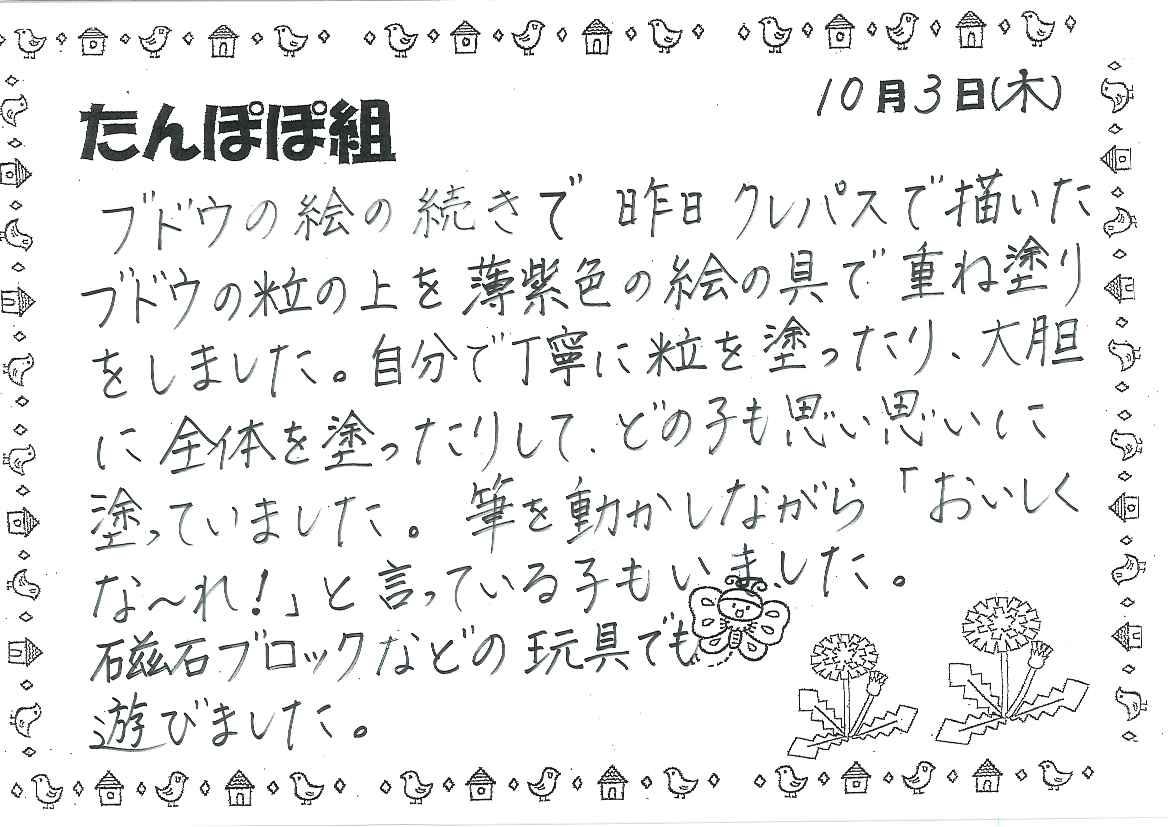 10月3日(木)
たんぽぽ組
ブドウの絵の続きで 昨日 クレパスで描いた
ブドウの粒の上を薄紫色の絵の具で重ね塗り
をしました。自分で丁寧に粒を塗ったり、大胆
に全体を塗ったりして、どの子も思い思いに
塗っていました。筆を動かしながら「おいしく
な～れ!」と言っている子もいました。
磁石ブロックなどの玩具でも
遊びました。